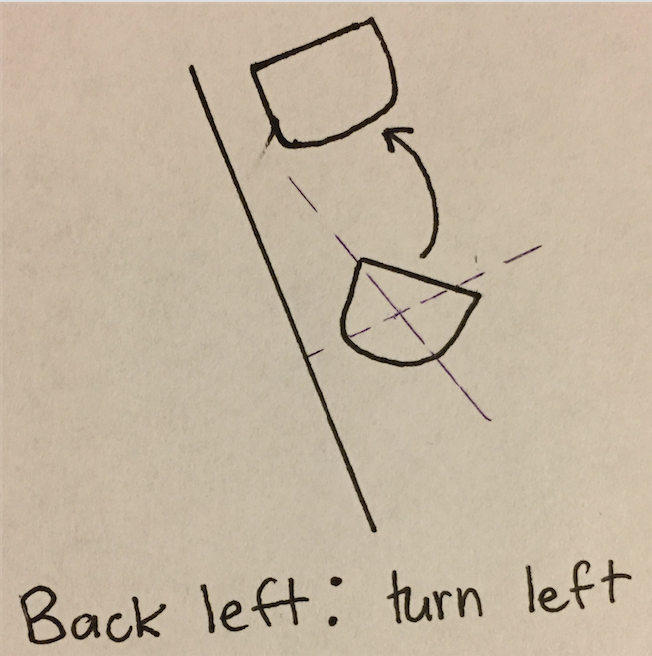 Back left: turn left